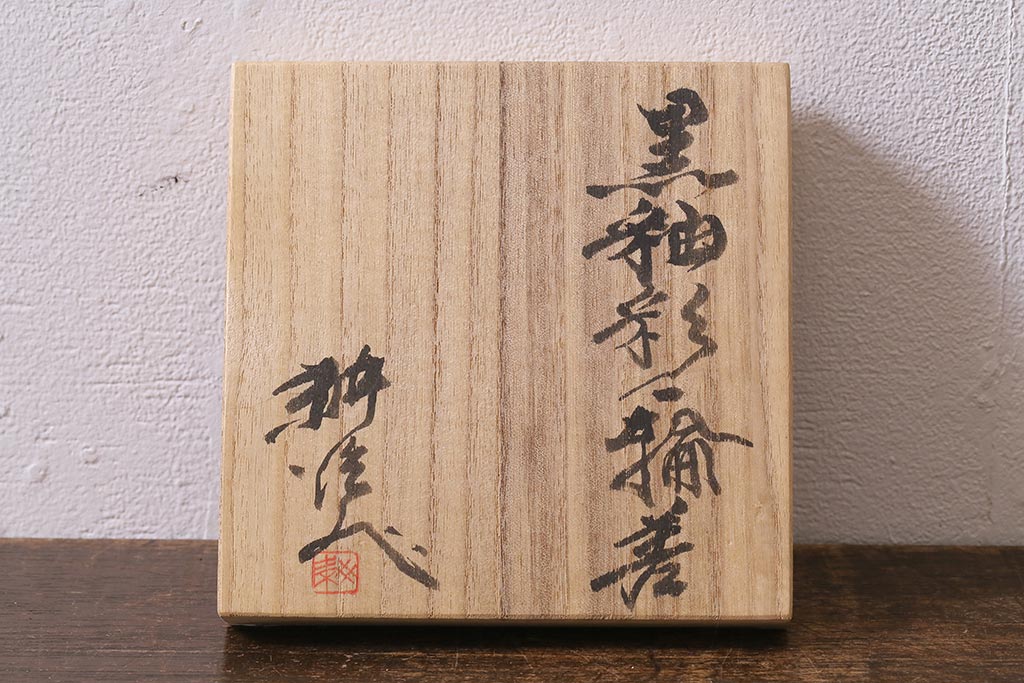 黒釉彩一輪差
耕治